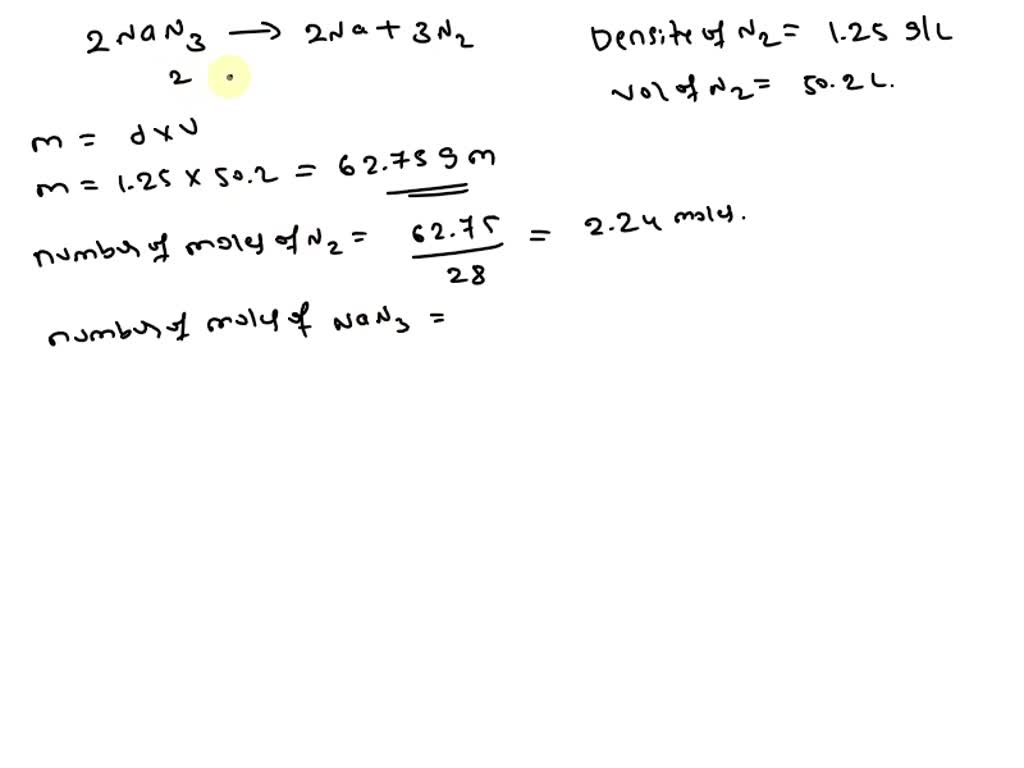 2NaN3 → 2Na + 3N2
2 .
Densite of N2 = 1.25 g/L
Vol of N2 = 50.2 L.
m = d × V
m = 1.25 × 50.2 = 62.75 gm
number of moles of N2 = 62.75 / 28 = 2.24 moles.
number of moles of NaN3 =